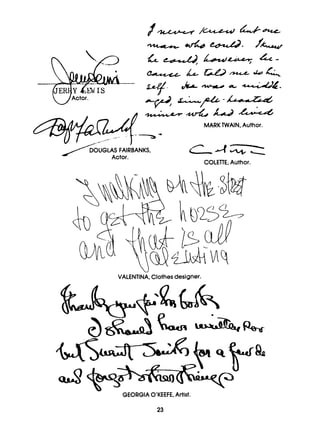 I never knew but one
man who could. I knew
he could, however, be-
cause he told me so him-
self. He was a middle-
aged, simple-hearted
miner who had lived
MARK TWAIN, Author.
JERRY LEWIS
Actor.
DOUGLAS FAIRBANKS,
Actor.
Colette
COLETTE, Author.
I walking on the street
to get the horse
and that is all
Valentina
VALENTINA, Clothes designer.
Thank you for his book
I should have written
but I wasn't for a few
and forgot other things
GEORGIA O'KEEFE, Artist.
23